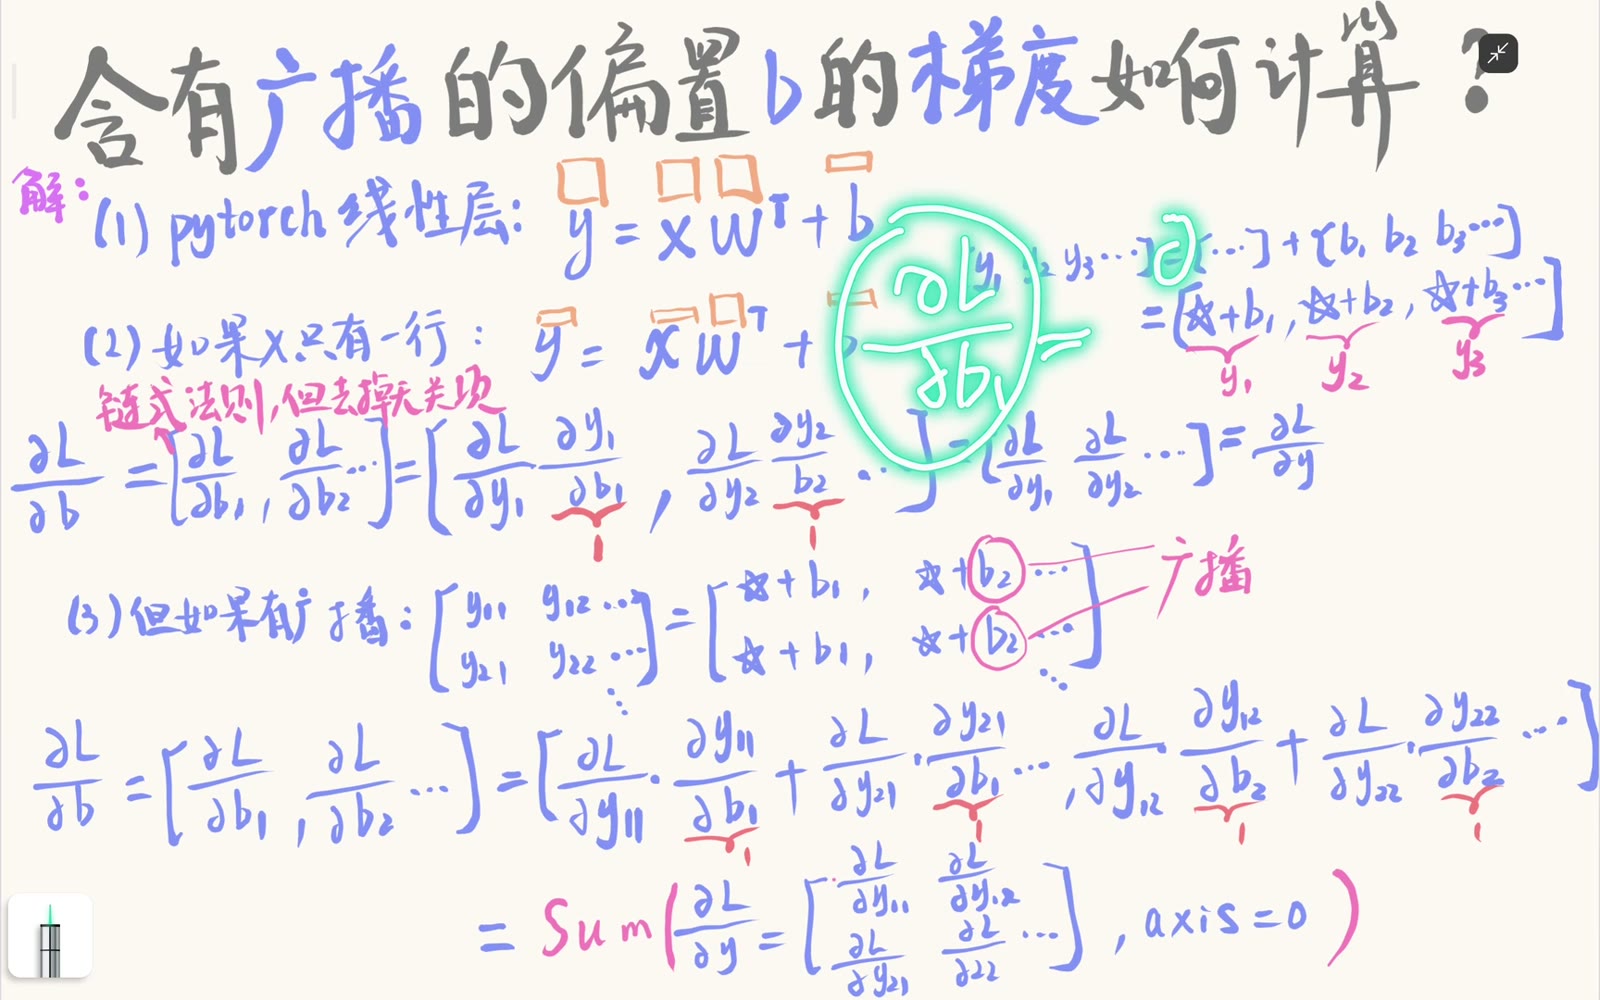 含有广播的偏置b的梯度如何计算?
解:
(1) pytorch 线性层: y = x Wᵀ + b
y₁ y₃ ⋯] = [⋯] + [b₁ b₂ b₃ ⋯]
= [☆+b₁, ☆+b₂, ☆+b₃ ⋯]
y₁ y₂ y₃
(2) 如果x只有一行: y = x Wᵀ +
∂L/∂b₁ =
链式法则,但去掉无关项
∂L/∂b = [∂L/∂b₁, ∂L/∂b₂ ⋯] = [∂L/∂y₁ ∂y₁/∂b₁, ∂L/∂y₂ ∂y₂/b₂ ⋯] = [∂L/∂y₁ ∂L/∂y₂ ⋯] = ∂L/∂y
1 1
(3) 但如果有广播: [y₁₁ y₁₂ ⋯ y₂₁ y₂₂ ⋯ ⋱] = [☆+b₁, ☆+b₂ ⋯ ☆+b₁, ☆+b₂ ⋯ ⋱] 广播
∂L/∂b = [∂L/∂b₁, ∂L/∂b₂ ⋯] = [∂L/∂y₁₁ · ∂y₁₁/∂b₁ + ∂L/∂y₂₁ · ∂y₂₁/∂b₁ ⋯, ∂L/∂y₁₂ · ∂y₁₂/∂b₂ + ∂L/∂y₂₂ · ∂y₂₂/∂b₂ ⋯]
1 1 1 1
= Sum(∂L/∂y = [∂L/∂y₁₁ ∂L/∂y₁₂ ∂L/∂y₂₁ ∂L/∂22 ⋯], axis=0)